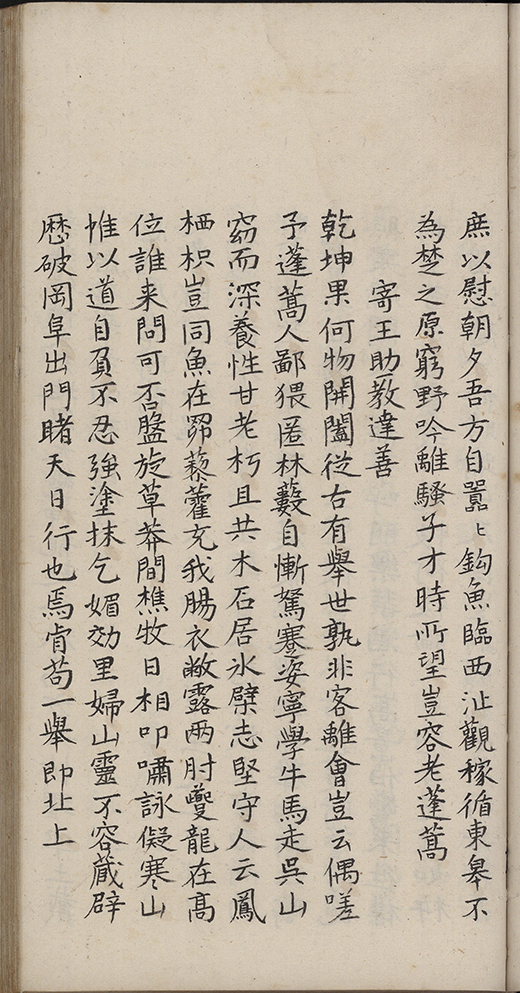 庶以慰朝夕吾方自囂〻鈎魚臨西沚觀稼循東皋不
為楚之原窮野吟離騷子才時所望豈容老蓬蒿
寄王助教達善
乾坤果何物開闔從古有舉世孰非客離會豈云偶嗟
予蓬蒿人鄙猥匿林藪自慚駑蹇姿寧學牛馬走吳山
窈而深養性甘老朽且共木石居氷檗志堅守人云鳳
栖枳豈同魚在罶藜藿充我腸衣敝露兩肘夔龍在髙
位誰来問可否盤旋草莽間樵牧日相叩嘯詠儗寒山
惟以道自負不忍強塗抹乞媚効里婦山靈不容蔵辟
歷破岡阜出門睹天日行也焉肯苟一舉即北上